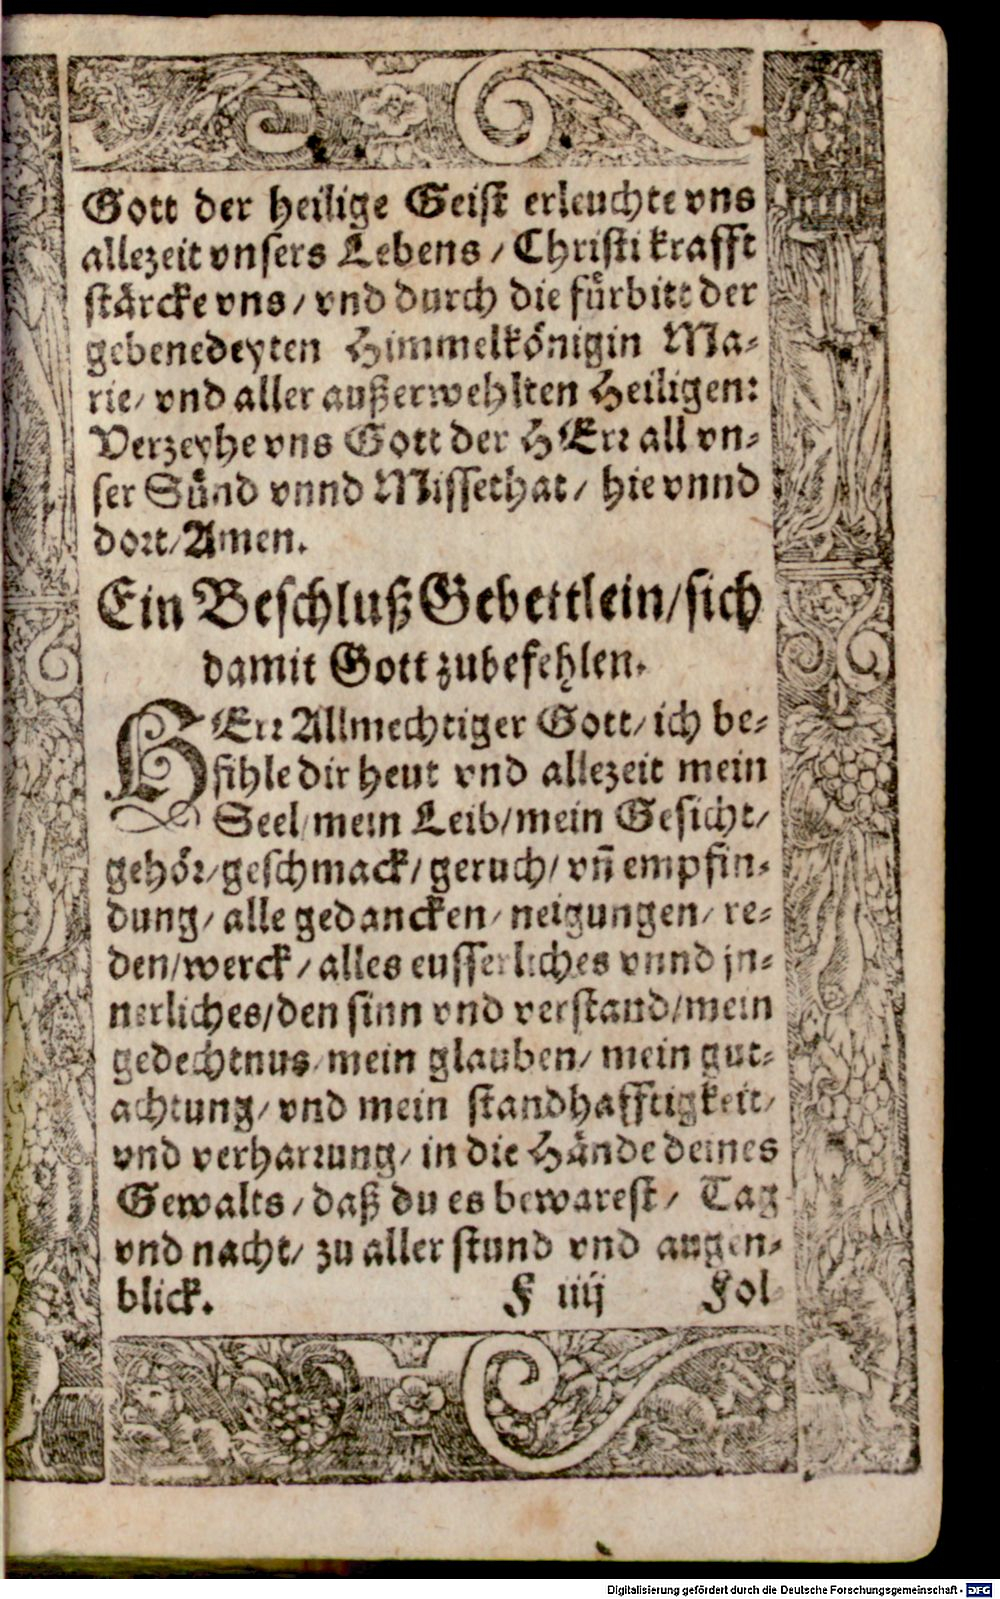 Gott der heilige Geist erleuchte vns
allezeit vnsers Lebens / Christi krafft
stårcke vns / vnd durch die fůrbitt der
gebenedeyten Himmelkőnigin Ma-
rie / vnd aller außerwehlten Heiligen:
Verzeyhe vns Gott der HErr all vn-
ser Sůnd vnnd Missethat / hie vnnd
dort / Amen.
Ein Beschluß Gebettlein / sich
damit Gott zubefehlen.
HErr Allmechtiger Gott / ich be-
fihle dir heut vnd allezeit mein
Seel / mein Leib / mein Gesicht /
gehőr / geschmack / geruch / vñ empfin-
dung / alle gedancken / neigungen / re-
den / werck / alles eusserliches vnnd jn-
nerliches / den sinn vnd verstand / mein
gedechtnus / mein glauben / mein gut-
achtung / vnd mein standhafftigkeit /
vnd verharrung / in die Hånde deines
Gewalts / daß du es bewarest / Tag
vnd nacht / zu aller stund vnd augen-
blick. F iiij Fol
Digitalisierung gefördert durch die Deutsche Forschungsgemeinschaft - DFG